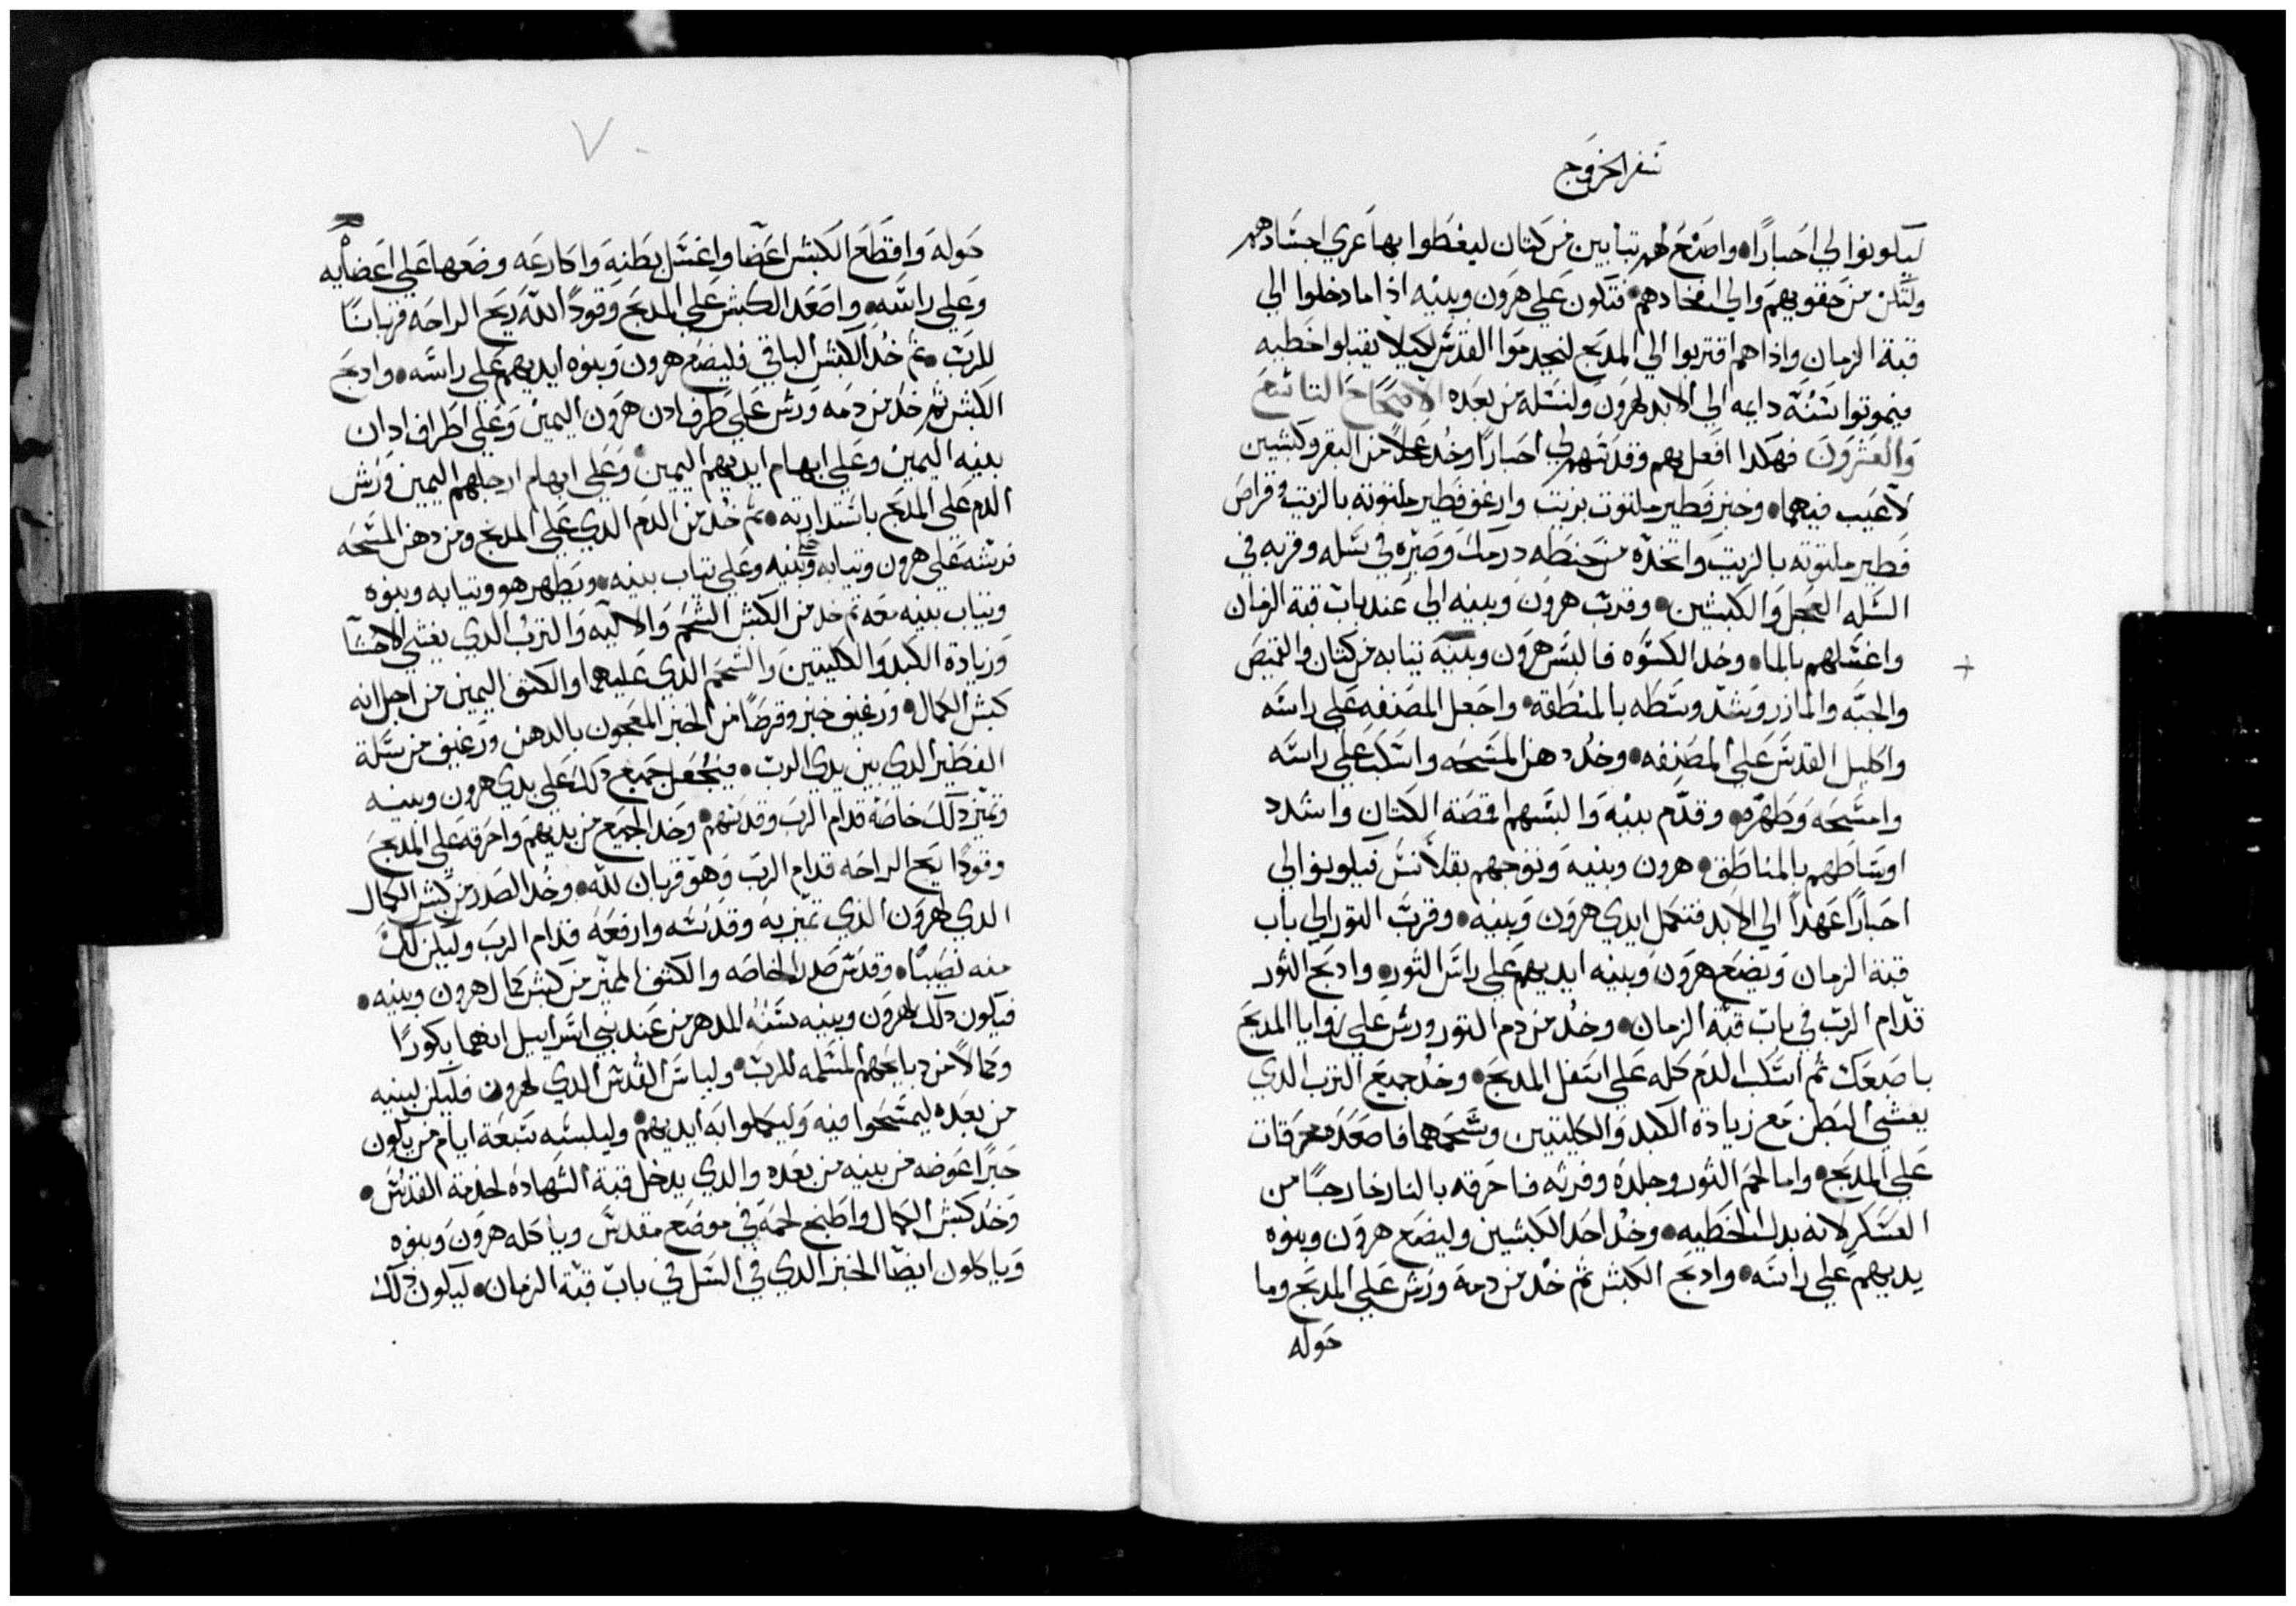 سفر الخروج
ليكونوا لي احبارًا واصنع لهم تبابين من كتان ليغطوا بها عري اجسادهم
ولتكن من حقويهم والي افخادهم فتكون علي هرون وبنيه اذا ما دخلوا الي
قبة الزمان واذا هم اقتربوا الي المدبح ليخدموا القدس لكيلا يقبلوا خطيه
فيموتوا سنة دايمه الي الابد لهرون ولنسله من بعده الاصحاح التاسع
والعشرون فهكدا افعل بهم وقدسهم لي احبارًا وخد عجلاً من البقر وكبشين
لا عيب فيهما وخبز فطير ملتوت بزيت وارغفة فطير ملتوته بالزيت وقراص
فطير ملتوته بالزيت واتخده من حنطه درمك وصيره في سله وقربه في
السله العجل والكبشين وقرب هرون وبنيه الي عند باب قبة الزمان
واغسلهم بالما وخد الكسوه فالبس هرون وبنيه تيابه من كتان والقميص
والجبه والمازر وشد وسطه بالمنطقه واجعل المصنفه علي راسه
واكليل القدس علي المصنفه وخد دهن المسحه واسكب علي راسه
وامسحه وطهره وقدم بنيه والبسهم اقصة الكتان واشدد
اوساطهم بالمناطق هرون وبنيه وتوجهم بقلانس فيكونوا لي
احبارًا عهدًا الي الابد فتكمل ايدي هرون وبنيه وقرب التور الي باب
قبة الزمان ويضع هرون وبنيه ايديهم علي راس التور وادبح الثور
قدام الرب في باب قبة الزمان وخد من دم التور ورش علي زوايا المدبح
باصبعك ثم اسكب الدم كله علي اسفل المدبح وخد جميع الترب الدي
يغشي البطن مع زيادة الكبد والكليتين وشحمهما فاصعده محرقات
علي المدبح واما لحم الثور وجلده وفرثه فاحرقه بالنار خارجًا من
العسكر لانه بدل الخطيه وخد احد الكبشين وليضع هرون وبنوه
يديهم علي راسه وادبح الكبش ثم خد من دمه ورش علي المدبح وما
حوله
٧٠
حوله واقطع الكبش اعضا واغسل بطنه واكارعه وضعها علي اعضايه
وعلي راسه واصعد الكبش علي المدبح وقودًا لله ريح الراحه قربانًا
للرب ثم خد الكبش الباقي فليضع هرون وبنوه ايديهم علي راسه وادبح
الكبش ثم خد من دمه ورش علي طرف ادن هرون اليمين وعلي اطراف ادان
بنيه اليمين وعلي ابهام ايديهم اليمين وعلي ابهام ارجلهم اليمين ورش
الدم علي المدبح باستدارته ثم خد من الدم الدي علي المدبح ومن دهن المسحه
فرشه علي هرون وتيابه وبنيه وعلي تياب بنيه ويطهر هو وتيابه وبنوه
وتياب بنيه معه ثم خد من الكبش الشحم والاليه والترب الدي يغشي الاحشا
وزيادة الكبد والكليتين والشحم الدي عليهما والكتف اليمين من اجل انه
كبش الكمال ورغيف خبز وقرصًا من الخبز المعجون بالدهن ورغيف من سلة
الفطير الدي بين يدي الرب فيجعل جميع دلك علي يدي هرون وبنيه
وتميز دلك خاصة قدام الرب وقدسهم وخد الجميع من يديهم واحرقه علي المدبح
وقودًا ريح الراحه قدام الرب وهو قربان لله وخد الصدر من كبش الكمال
الدي لهرون الذي تميز به وقدسه وارفعه قدام الرب وليكن لك
منه نصيبًا وقدس صدر الخاصه والكتف المميز من كبش كمال هرون وبنيه
فيكون دلك لهرون وبنيه سنة الدهر من عند بني اسراييل انهما بكورًا
وكمالاً من دبايحهم المسلمه للرب ولباس القدس الدي لهرون فليكن لبنيه
من بعده ليمسحوا فيه وليكملوا به ايديهم وليلبسه سبعة ايام من يكون
حبرًا عوضه من بنيه من بعده والدي يدخل قبة الشهاده لخدمة القدس
وخد كبش الكمال واطبخ لحمه في موضع مقدس وياكله هرون وبنوه
وياكلون ايضًا الخبز الدي في السل في باب قبة الزمان ليكون دلك